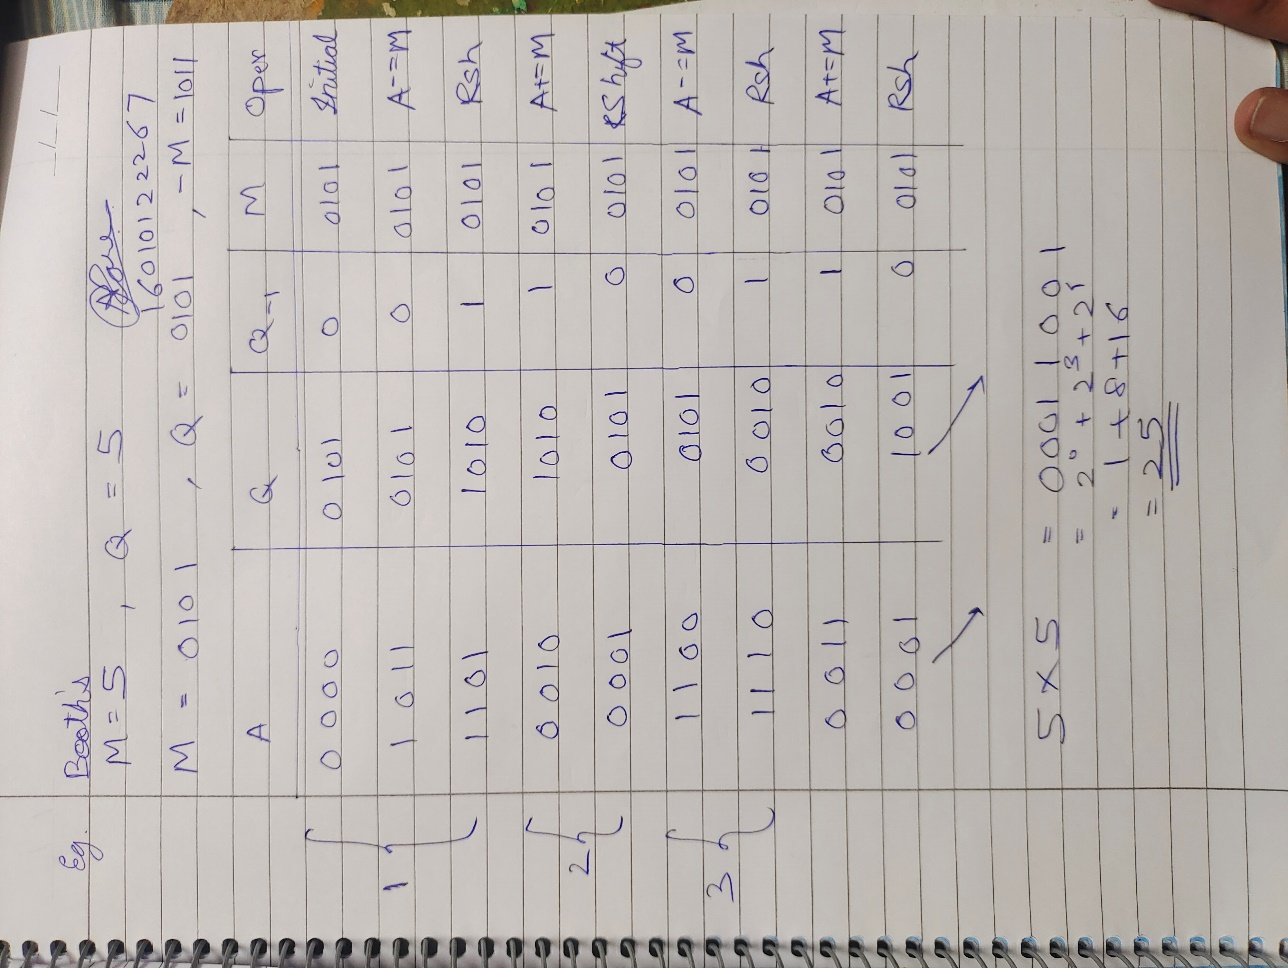 Eg. Booth's
M = 5 , Q = 5
16010122267
M = 0101 , Q = 0101 , -M = 1011
A Q Q-1 M Oper
1 0000 0101 0 0101 Initial
1011 0101 0 0101 A-=M
1101 1010 1 0101 Rsh
2 0010 1010 1 0101 A+=M
0001 0101 0 0101 RShift
3 1100 0101 0 0101 A-=M
1110 0010 1 0101 Rsh
0011 0010 1 0101 A+=M
0001 1001 0 0101 Rsh
5 x 5 = 00011001
= 2⁰ + 2³ + 2⁴
= 1 + 8 + 16
= 25